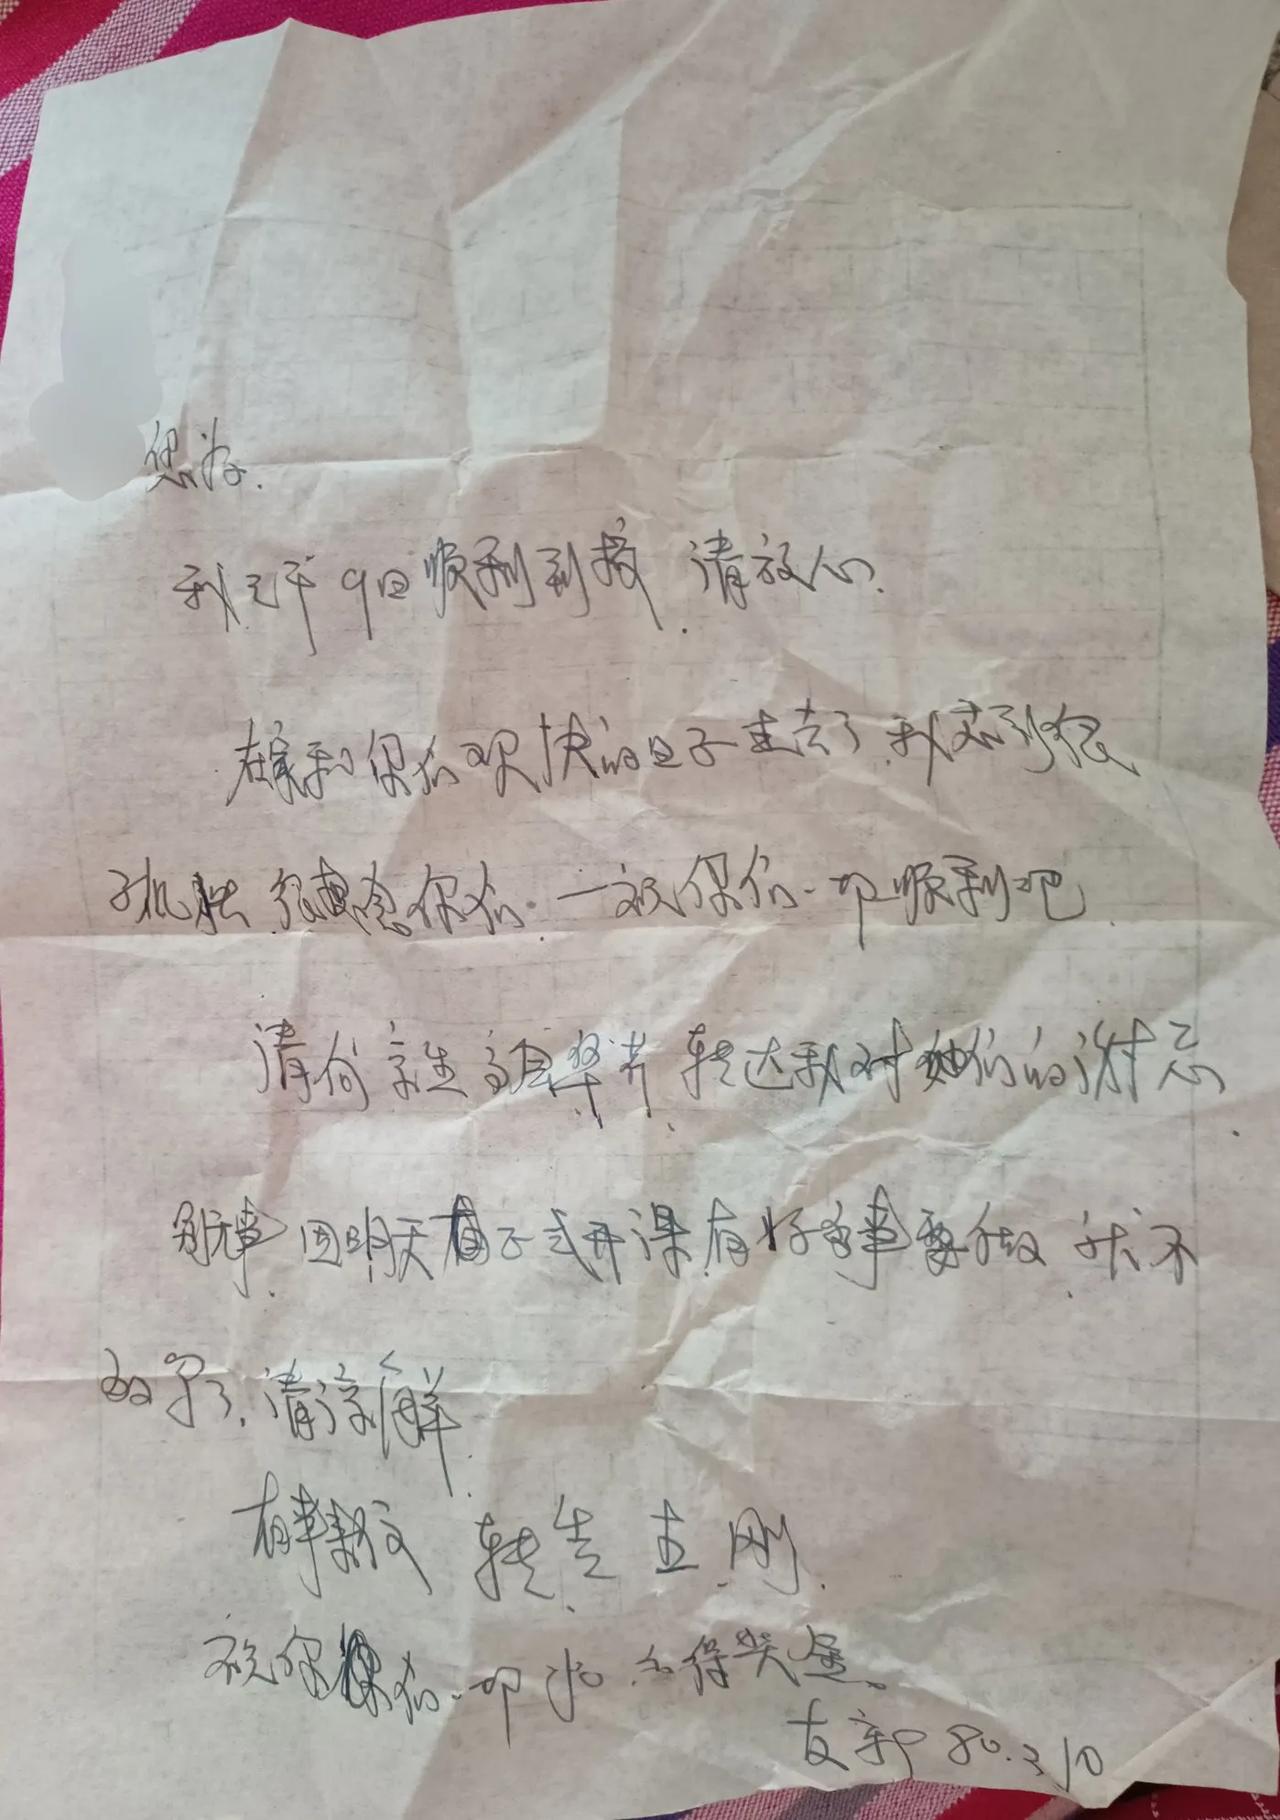 您好.
我已于9日顺利到校.请放心.
在家和你们欢快的日子过去了.我感到很
孤独.很想念你们.祝你们一切顺利吧.
请向 转达我对她们的谢意.
别无事.因明天正式开课.有好多事要做.我不
写了.请谅解.
转告 刚.
祝你们一切
友新 80.2/10